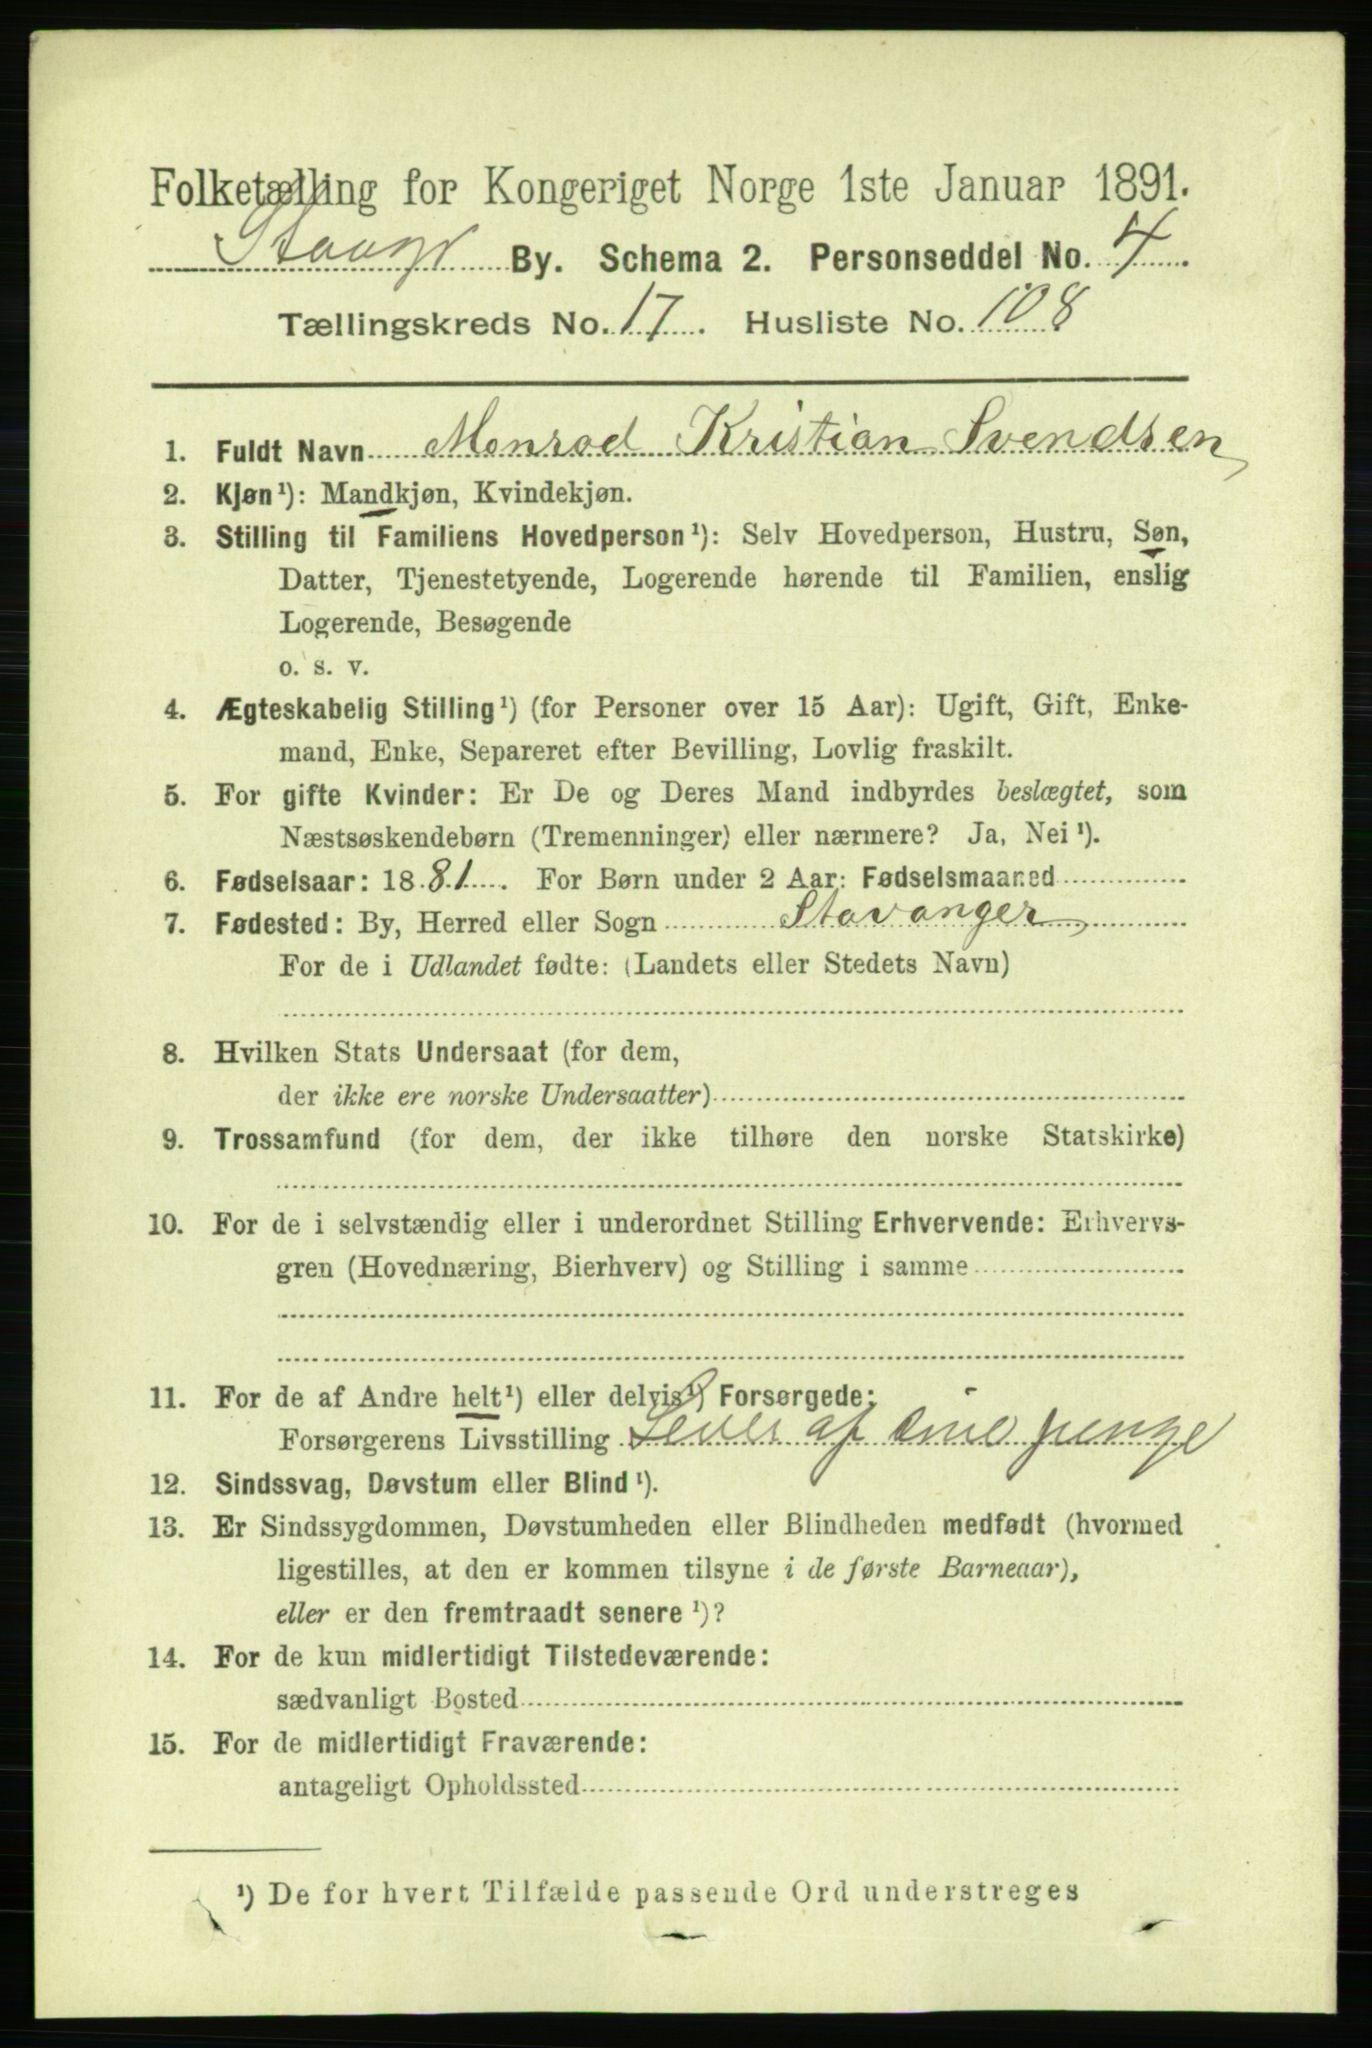 Folketælling for Kongeriget Norge 1ste Januar 1891.
By. Schema 2. Personseddel No. 4
Tællingskreds No. 17. Husliste No. 108
1. Fuldt Navn Monrad Kristian Svendsen
2. Kjøn¹): Mandkjøn, Kvindekjøn.
3. Stilling til Familiens Hovedperson¹): Selv Hovedperson, Hustru, Søn,
Datter, Tjenestetyende, Logerende hørende til Familien, enslig
Logerende, Besøgende
o. s. v.
4. Ægteskabelig Stilling¹) (for Personer over 15 Aar): Ugift, Gift, Enke-
mand, Enke, Separeret efter Bevilling, Lovlig fraskilt.
5. For gifte Kvinder: Er De og Deres Mand indbyrdes beslægtet, som
Næstsøskendebørn (Tremenninger) eller nærmere? Ja, Nei¹).
6. Fødselsaar: 1881. For Børn under 2 Aar: Fødselsmaaned
7. Fødested: By, Herred eller Sogn Stavanger
For de i Udlandet fødte: (Landets eller Stedets Navn)
8. Hvilken Stats Undersaat (for dem,
der ikke ere norske Undersaatter)
9. Trossamfund (for dem, der ikke tilhøre den norske Statskirke)
10. For de i selvstændig eller i underordnet Stilling Erhvervende: Erhvervs-
gren (Hovednæring, Bierhverv) og Stilling i samme
11. For de af Andre helt¹) eller delvis¹) Forsørgede:
Forsørgerens Livsstilling Lever af sine penge
12. Sindssvag, Døvstum eller Blind¹).
13. Er Sindssygdommen, Døvstumheden eller Blindheden medfødt (hvormed
ligestilles, at den er kommen tilsyne i de første Barneaar),
eller er den fremtraadt senere¹)?
14. For de kun midlertidigt Tilstedeværende:
sædvanligt Bosted
15. For de midlertidigt Fraværende:
antageligt Opholdssted
¹) De for hvert Tilfælde passende Ord understreges